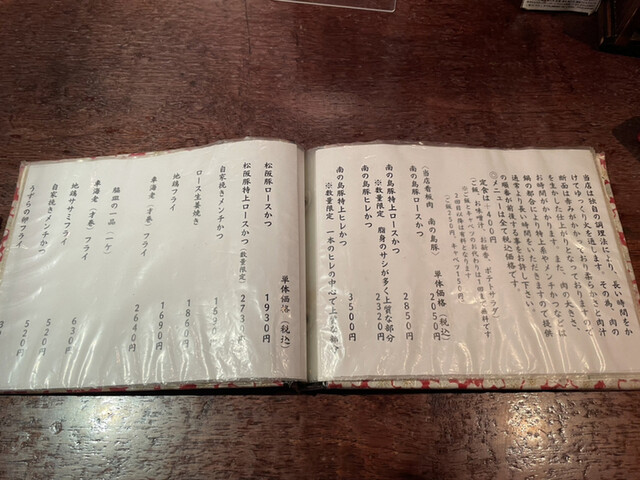 当店は独自の調理法により、長い時間をか
けてゆっくり火を通します。その為、肉の
断面は赤みがかっており柔らかさと肉汁
を生かした仕上がりとなっておりますので、
お時間がかかります。また、肉の大きさ、
鍋の都合により特上系やメンチかつなどは
通常より長い時間をいただきますので提供
の順番が前後する事をお許し下さい。
◎メニューは全て税込価格です。
定食は+490円
(ご飯、豚汁、お新香、ポテトサラダ)
◎ご飯とキャベツのお代わりは1回まで無料です
2回目以後は有料となります
(ご飯250円、キャベツ150円)
〈当店看板肉 南の島豚〉 単体価格(税込)
南の島豚ロースかつ 2050円
南の島豚特上ロースかつ 2850円
※数量限定 脂身のサシが多く上質な部分
南の島豚ヒレかつ 2320円
南の島豚特上ヒレかつ 3500円
※数量限定 一本のヒレの中心で上質な
単体価格(税込)
松阪豚ロースかつ 1930円
松阪豚特上ロースかつ(数量限定) 273円
自家挽きメンチかつ
ロース生姜焼き 1860円
地鶏フライ 1690円
車海老(才巻)フライ 2640円
脇皿の一品(一ケ)
車海老(才巻)フライ
地鶏ササミフライ 630円
自家挽きメンチかつ 520円
うずらの卵フライ 520円